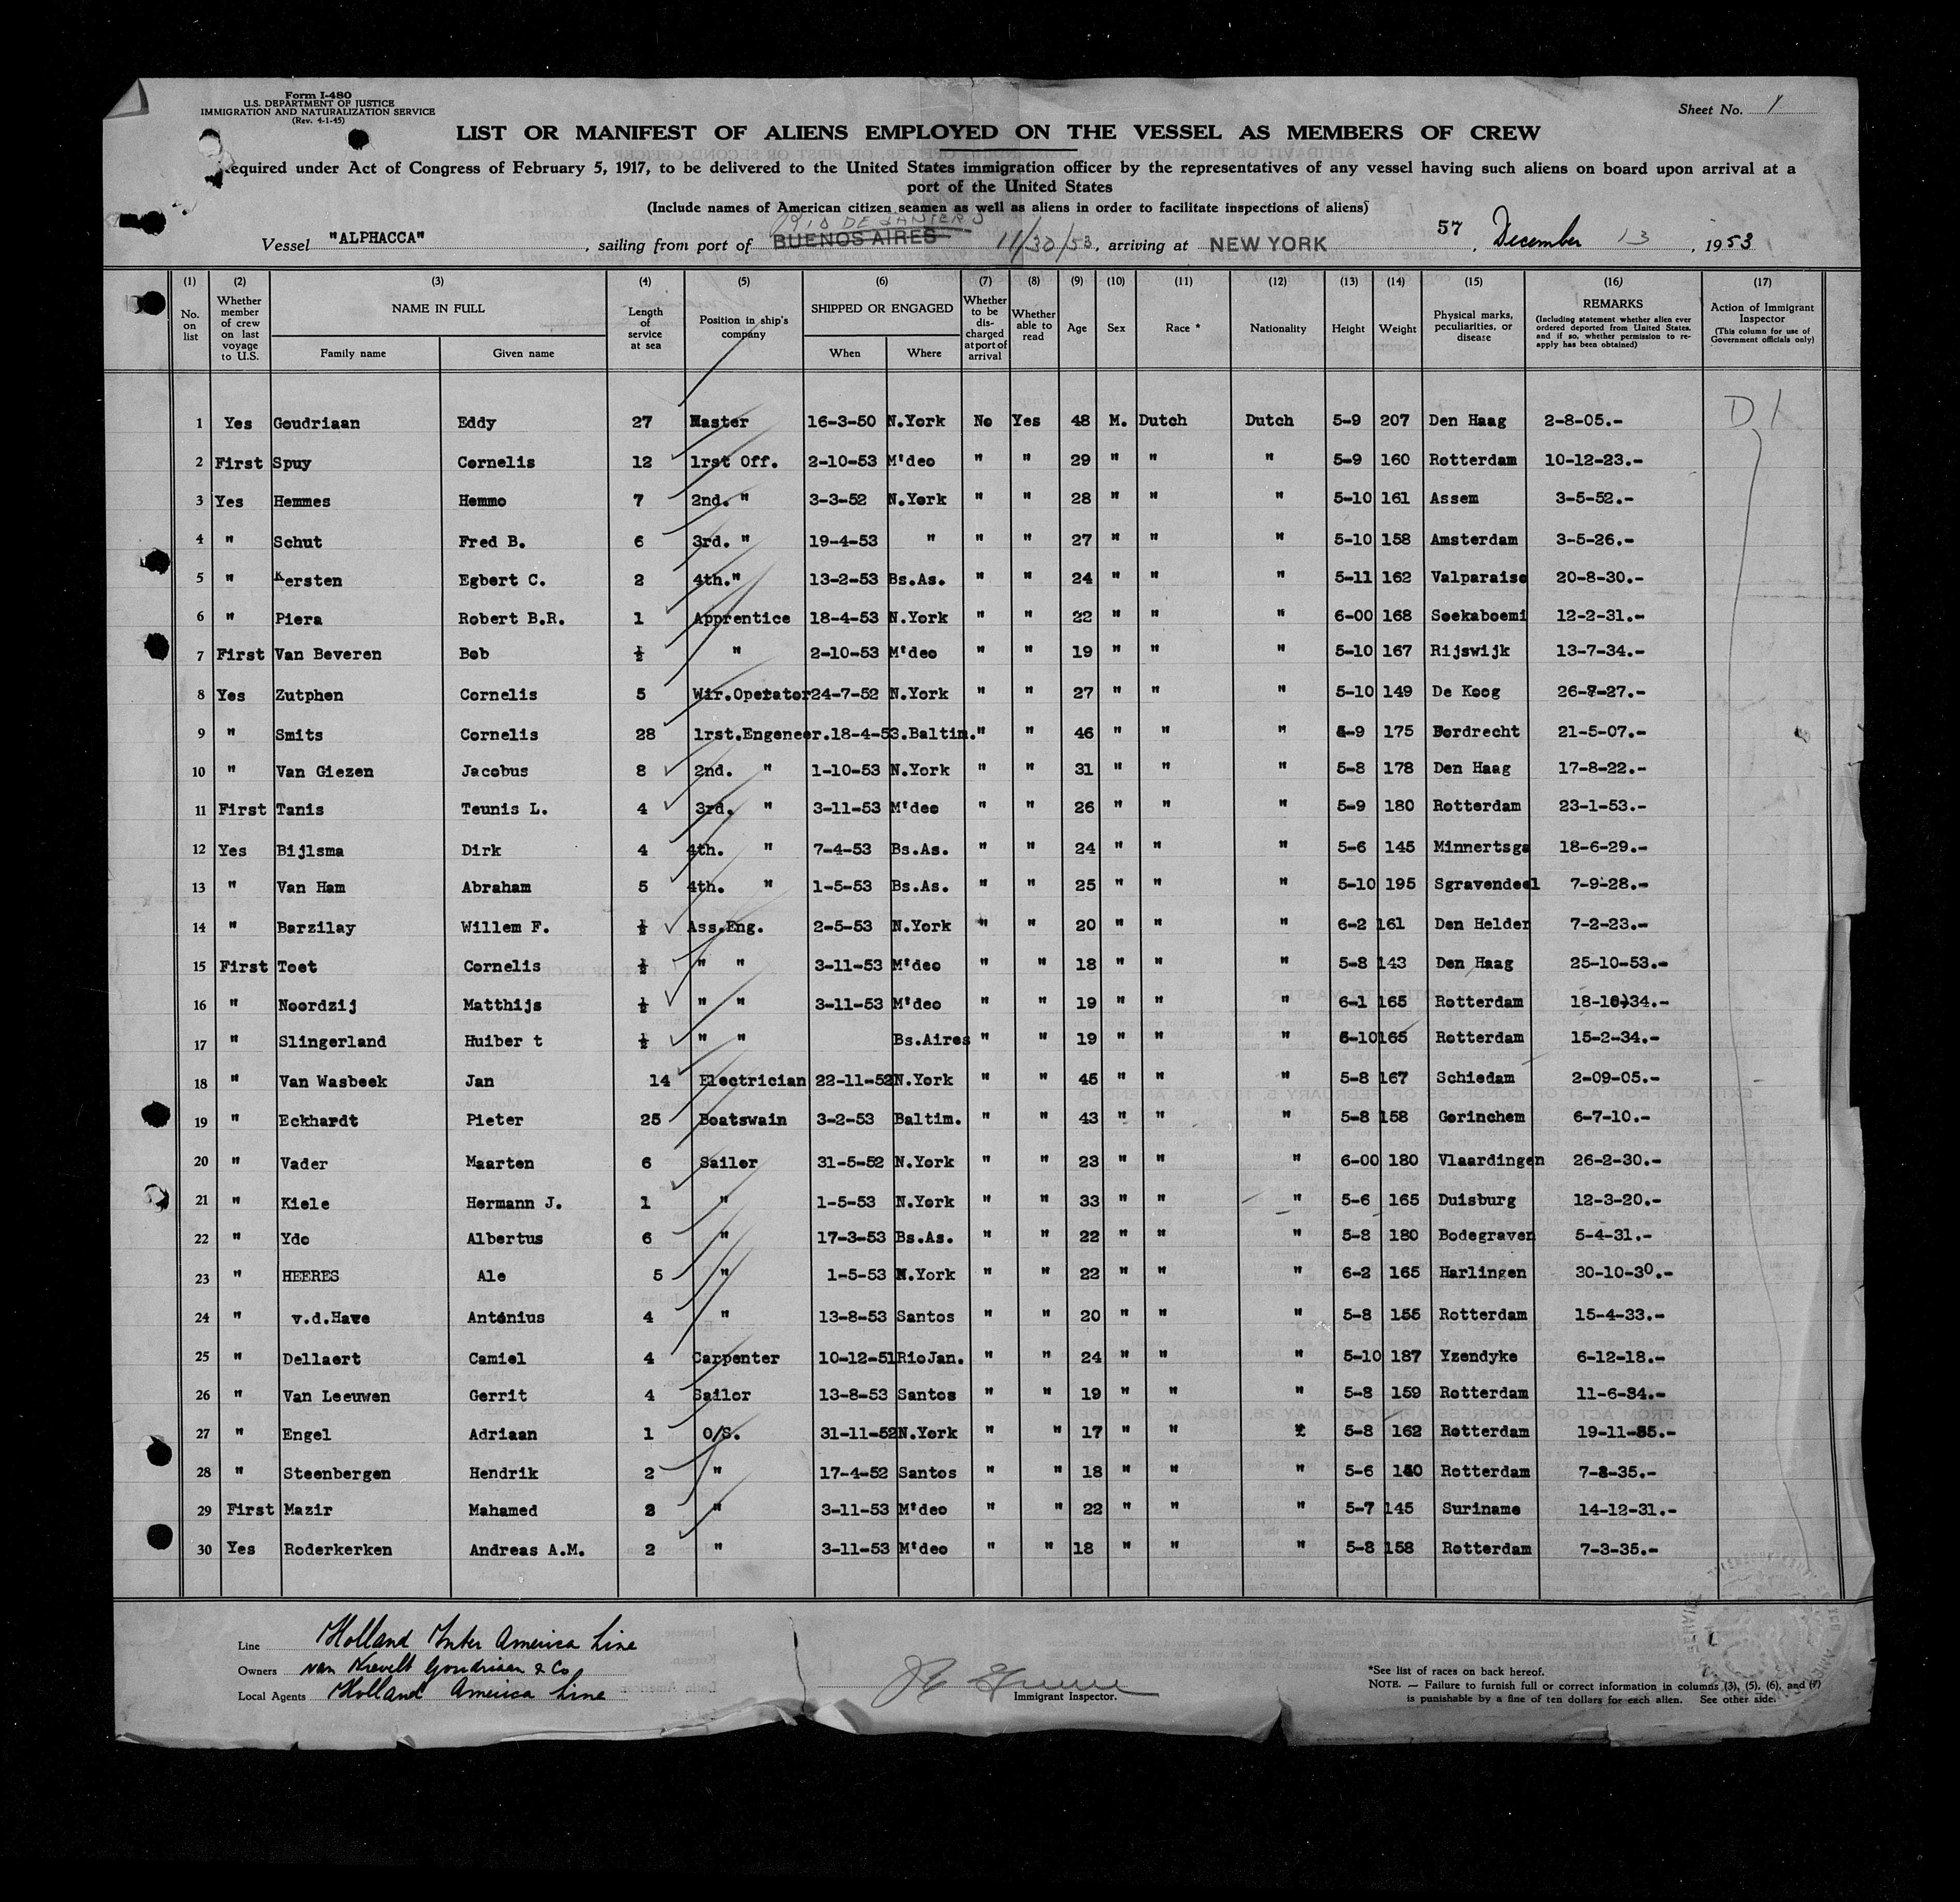 Form I-480
U.S. DEPARTMENT OF JUSTICE
IMMIGRATION AND NATURALIZATION SERVICE
(Rev. 4-1-45)
Sheet No. 1
LIST OR MANIFEST OF ALIENS EMPLOYED ON THE VESSEL AS MEMBERS OF CREW
equired under Act of Congress of February 5, 1917, to be delivered to the United States immigration officer by the representatives of any vessel having such aliens on board upon arrival at a
port of the United States
(Include names of American citizen seamen as well as aliens in order to facilitate inspections of aliens)
RIO DE JANIERO
Vessel "ALPHACCA", sailing from port of BUENOS AIRES 11/30/53, arriving at NEW YORK 57, December 13, 1953
(1) (2) (3) (4) (5) (6) (7) (8) (9) (10) (11) (12) (13) (14) (15) (16) (17)
No. on list | Whether member of crew on last voyage to U.S. | NAME IN FULL Family name Given name | Length of service at sea | Position in ship's company | SHIPPED OR ENGAGED When Where | Whether to be discharged at port of arrival | Whether able to read | Age | Sex | Race * | Nationality | Height | Weight | Physical marks, peculiarities, or disease | REMARKS (Including statement whether alien ever ordered deported from United States, and if so, whether permission to re-apply has been obtained) | Action of Immigrant Inspector (This column for use of Government officials only)
1 Yes Goudriaan Eddy 27 Master 16-3-50 N.York No Yes 48 M. Dutch Dutch 5-9 207 Den Haag 2-8-05.- D1
2 First Spuy Cornelis 12 1rst Off. 2-10-53 M'deo " " 29 " " " 5-9 160 Rotterdam 10-12-23.-
3 Yes Hemmes Hemmo 7 2nd. " 3-3-52 N.York " " 28 " " " 5-10 161 Assem 3-5-52.-
4 " Schut Fred B. 6 3rd. " 19-4-53 " " " 27 " " " 5-10 158 Amsterdam 3-5-26.-
5 " Kersten Egbert C. 2 4th." 13-2-53 Bs.As. " " 24 " " " 5-11 162 Valparaiso 20-8-30.-
6 " Piera Robert B.R. 1 Apprentice 18-4-53 N.York " " 22 " " " 6-00 168 Soekaboemi 12-2-31.-
7 First Van Beveren Bob ½ " 2-10-53 M'deo " " 19 " " " 5-10 167 Rijswijk 13-7-34.-
8 Yes Zutphen Cornelis 5 Wir.Operator 24-7-52 N.York " " 27 " " " 5-10 149 De Koog 26-7-27.-
9 " Smits Cornelis 28 1rst.Engeneer. 18-4-53. Baltim. " " 46 " " " 5-9 175 Dordrecht 21-5-07.-
10 " Van Giezen Jacobus 8 2nd. " 1-10-53 N.York " " 31 " " " 5-8 178 Den Haag 17-8-22.-
11 First Tanis Teunis L. 4 3rd. " 3-11-53 M'deo " " 26 " " " 5-9 180 Rotterdam 23-1-53.-
12 Yes Bijlsma Dirk 4 4th. " 7-4-53 Bs.As. " " 24 " " " 5-6 145 Minnertsga 18-6-29.-
13 " Van Ham Abraham 5 4th. " 1-5-53 Bs.As. " " 25 " " " 5-10 195 Sgravendeel 7-9-28.-
14 " Barzilay Willem F. ½ Ass.Eng. 2-5-53 N.York " " 20 " " " 6-2 161 Den Helder 7-2-23.-
15 First Toet Cornelis ½ " " 3-11-53 M'deo " " 18 " " " 5-8 143 Den Haag 25-10-53.-
16 " Noordzij Matthijs ½ " " 3-11-53 M'deo " " 19 " " " 6-1 165 Rotterdam 18-10-34.-
17 " Slingerland Huiber t ½ " " Bs.Aires " " 19 " " " 5-10 165 Rotterdam 15-2-34.-
18 " Van Wasbeek Jan 14 Electrician 22-11-52 N.York " " 45 " " " 5-8 167 Schiedam 2-09-05.-
19 " Eckhardt Pieter 25 Boatswain 3-2-53 Baltim. " " 43 " " " 5-8 158 Gorinchem 6-7-10.-
20 " Vader Maarten 6 Sailor 31-5-52 N.York " " 23 " " " 6-00 180 Vlaardingen 26-2-30.-
21 " Kiele Hermann J. 1 " 1-5-53 N.York " " 33 " " " 5-6 165 Duisburg 12-3-20.-
22 " Ydo Albertus 6 " 17-3-53 Bs.As. " " 22 " " " 5-8 180 Bodegraven 5-4-31.-
23 " HEERES Ale 5 " 1-5-53 N.York " " 22 " " " 6-2 165 Harlingen 30-10-30.-
24 " v.d.Have Antonius 4 " 13-8-53 Santos " " 20 " " " 5-8 155 Rotterdam 15-4-33.-
25 " Dellaert Camiel 4 Carpenter 10-12-51 RioJan. " " 24 " " " 5-10 187 Yzendyke 6-12-18.-
26 " Van Leeuwen Gerrit 4 Sailor 13-8-53 Santos " " 19 " " " 5-8 159 Rotterdam 11-6-34.-
27 " Engel Adriaan 1 O/S. 31-11-52 N.York " " 17 " " " 5-8 162 Rotterdam 19-11-35.-
28 " Steenbergen Hendrik 2 " 17-4-52 Santos " " 18 " " " 5-6 140 Rotterdam 7-8-35.-
29 First Mazir Mahamed 2 " 3-11-53 M'deo " " 22 " " " 5-7 145 Suriname 14-12-31.-
30 Yes Roderkerken Andreas A.M. 2 " 3-11-53 M'deo " " 18 " " " 5-8 158 Rotterdam 7-3-35.-
Line Holland Inter America Line
Owners van Nievelt Goudriaan & Co
Local Agents Holland America Line
Immigrant Inspector.
*See list of races on back hereof.
NOTE. — Failure to furnish full or correct information in columns (3), (5), (6), and (7)
is punishable by a fine of ten dollars for each alien. See other side.